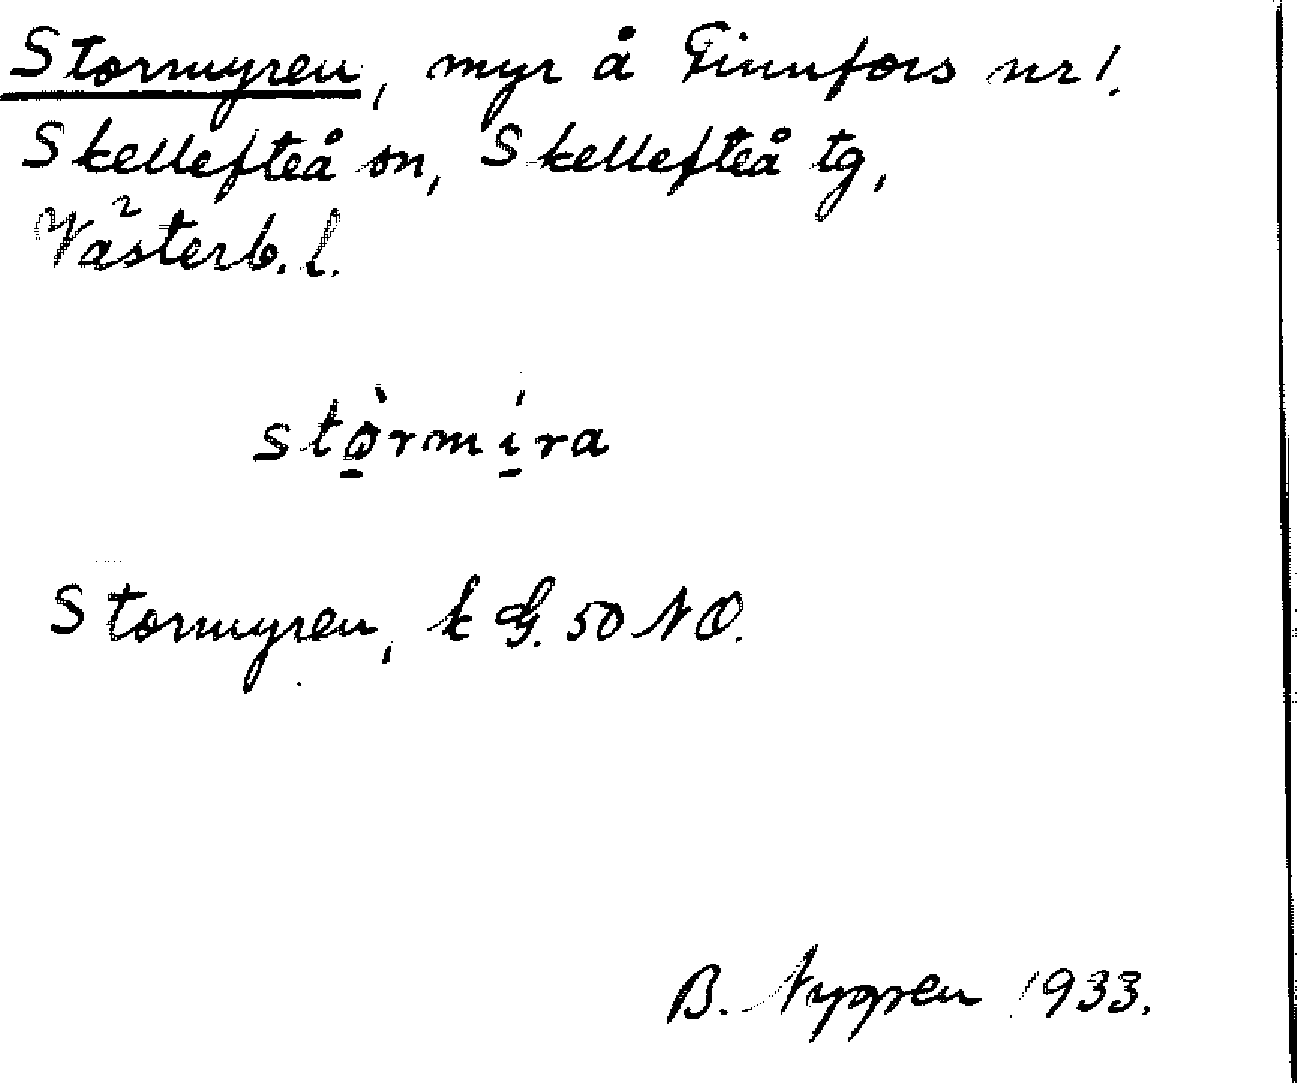 Stormyren, myr å Finnfors nr 1.
Skellefteå sn, Skellefteå tg,
Västerb. l.
stò̱rmí̱ra
Stormyren, k G. 50 NO.
B. Nygren 1933.